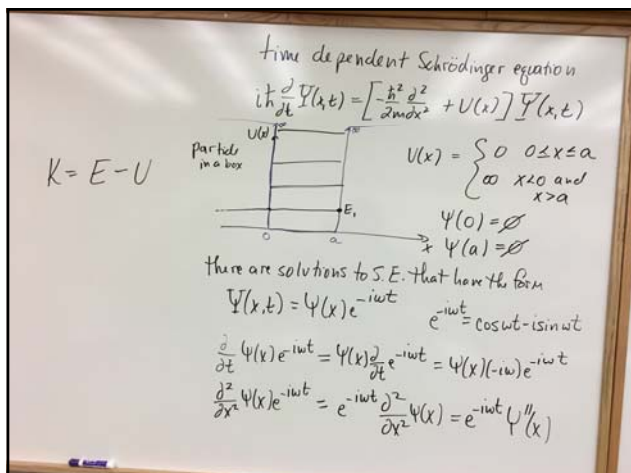 time dependent Schrödinger equation
iħ ∂/∂t Ψ(x,t) = [-ħ²/2m ∂²/∂x² + U(x)] Ψ(x,t)
U(x) ∞ ∞
particle
in a box
K = E - U
E₁
0 a x
U(x) = { 0 0 ≤ x ≤ a
∞ x<0 and
x>a
ψ(0) = 0
ψ(a) = 0
there are solutions to S.E. that have the form
Ψ(x,t) = ψ(x) e^-iωt
e^-iωt = cosωt - isinωt
∂/∂t ψ(x) e^-iωt = ψ(x) ∂/∂t e^-iωt = ψ(x)(-iω)e^-iωt
∂²/∂x² ψ(x)e^-iωt = e^-iωt ∂²/∂x² ψ(x) = e^-iωt ψ''(x)